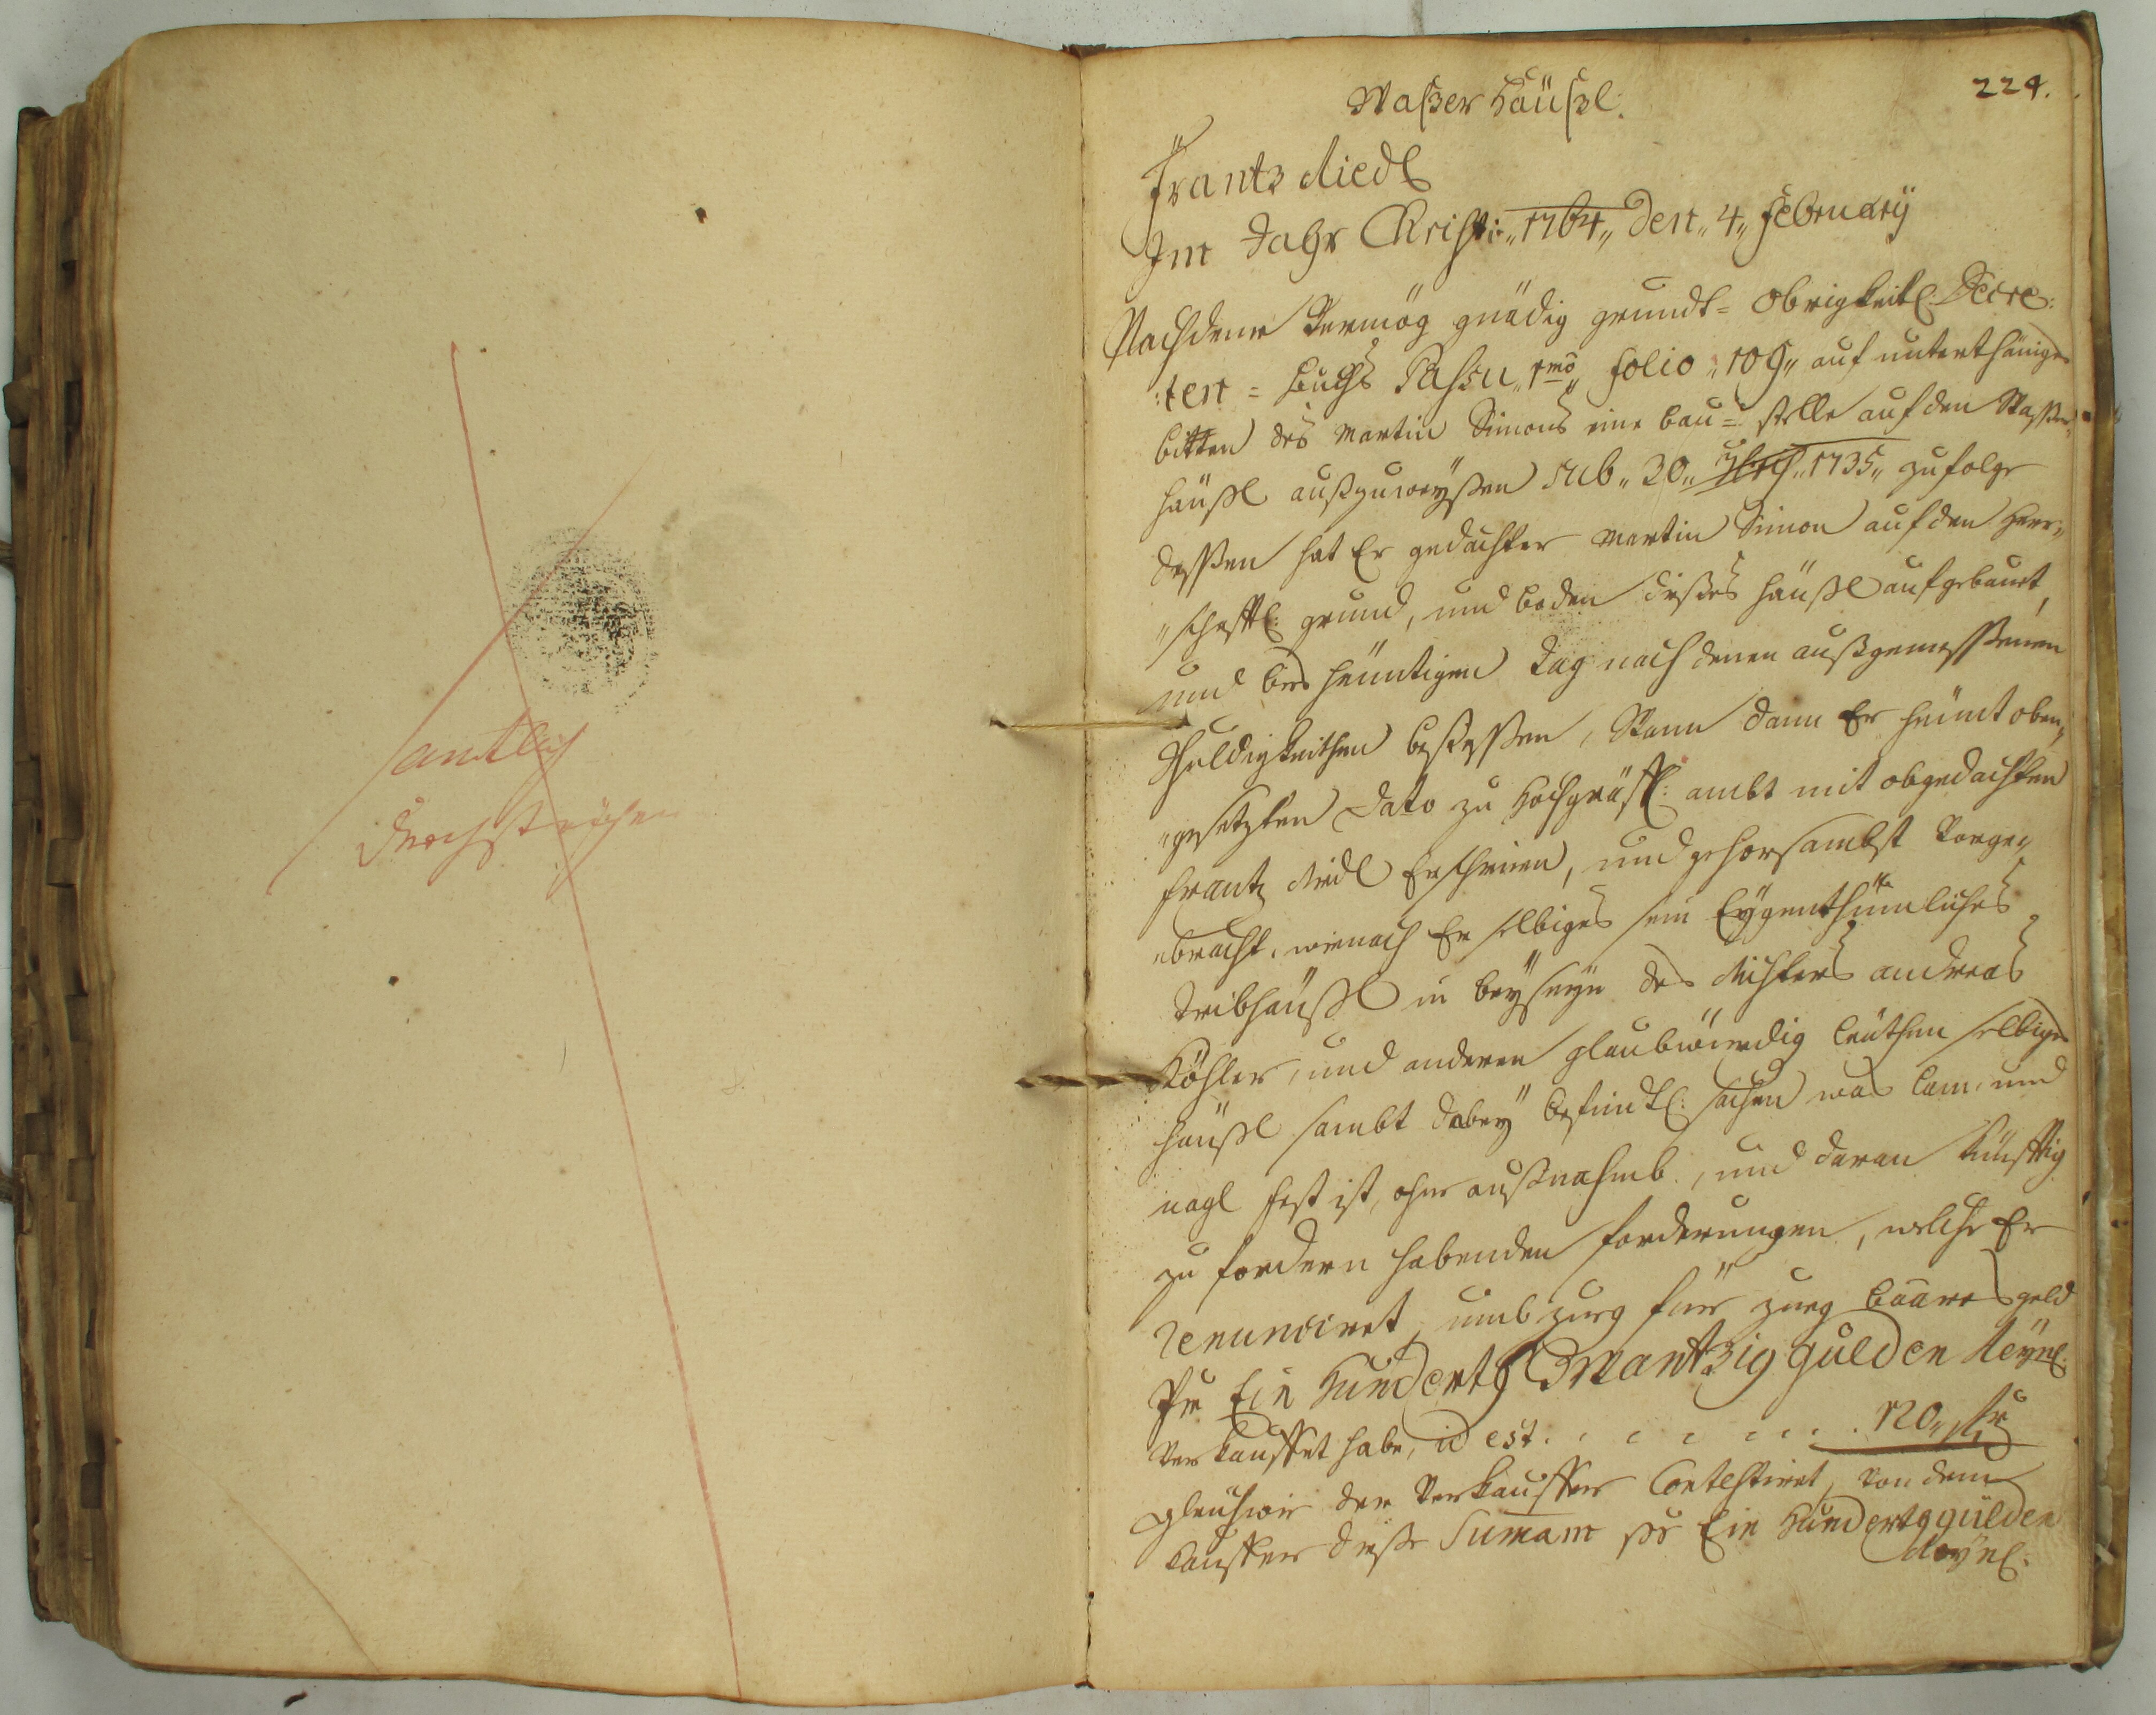 amtlich
durchstrichen
224.
Waßer Häußl.
Frantz Riedl
Im Jahr Christi „1764„ den „4„ february
Nachdeme Vermög gnädig grundt= Obrigkeitl. Decre:
:ten= buchs Pasu „1mo„ folio „109„ auf unterthäniges
bitten des Martin Simons eine bau= stelle auf den Wasser
häußl außzuweyßen sub „30„ 1735„ zufolge
dessen hat Er gedachter Martin Simon auf den Herr„
„schafftl: grund, und boden dießes häußl aufgebauet,
und bis heüntigen Tag nach denen außgemessenen
Schuldigkeithen besessen, Wann dann Er heünt oben„
„gesetzten Dato zu Hochgräffl: ambt mit obgedachten
Frantz Riedl Erschienen, und gehorsambst Vorge„
„bracht, wienach Er selbiges sein Eygenthümliches
Treibhäußl in beyseyn des Richters Andreas
Köhler, und anderen glaubwürdig leüthen selbiges
häußl sambt dabey befindtl: sachen was laim, und
nagl fest ist, ohne außnahmb, und daran künfftig
zu fordern habenden forderungen, welche Er
renunciret, umb und für baares geld
Pr Ein Hundert Zwantzig gulden Reynl.
Verkauffet habe, id est . . . . . . . . 120„ f
gleichwie der Verkauffer Contestiret, von dem
Kauffer dieße Sumam pr Ein Hundert gulden
Reynl.